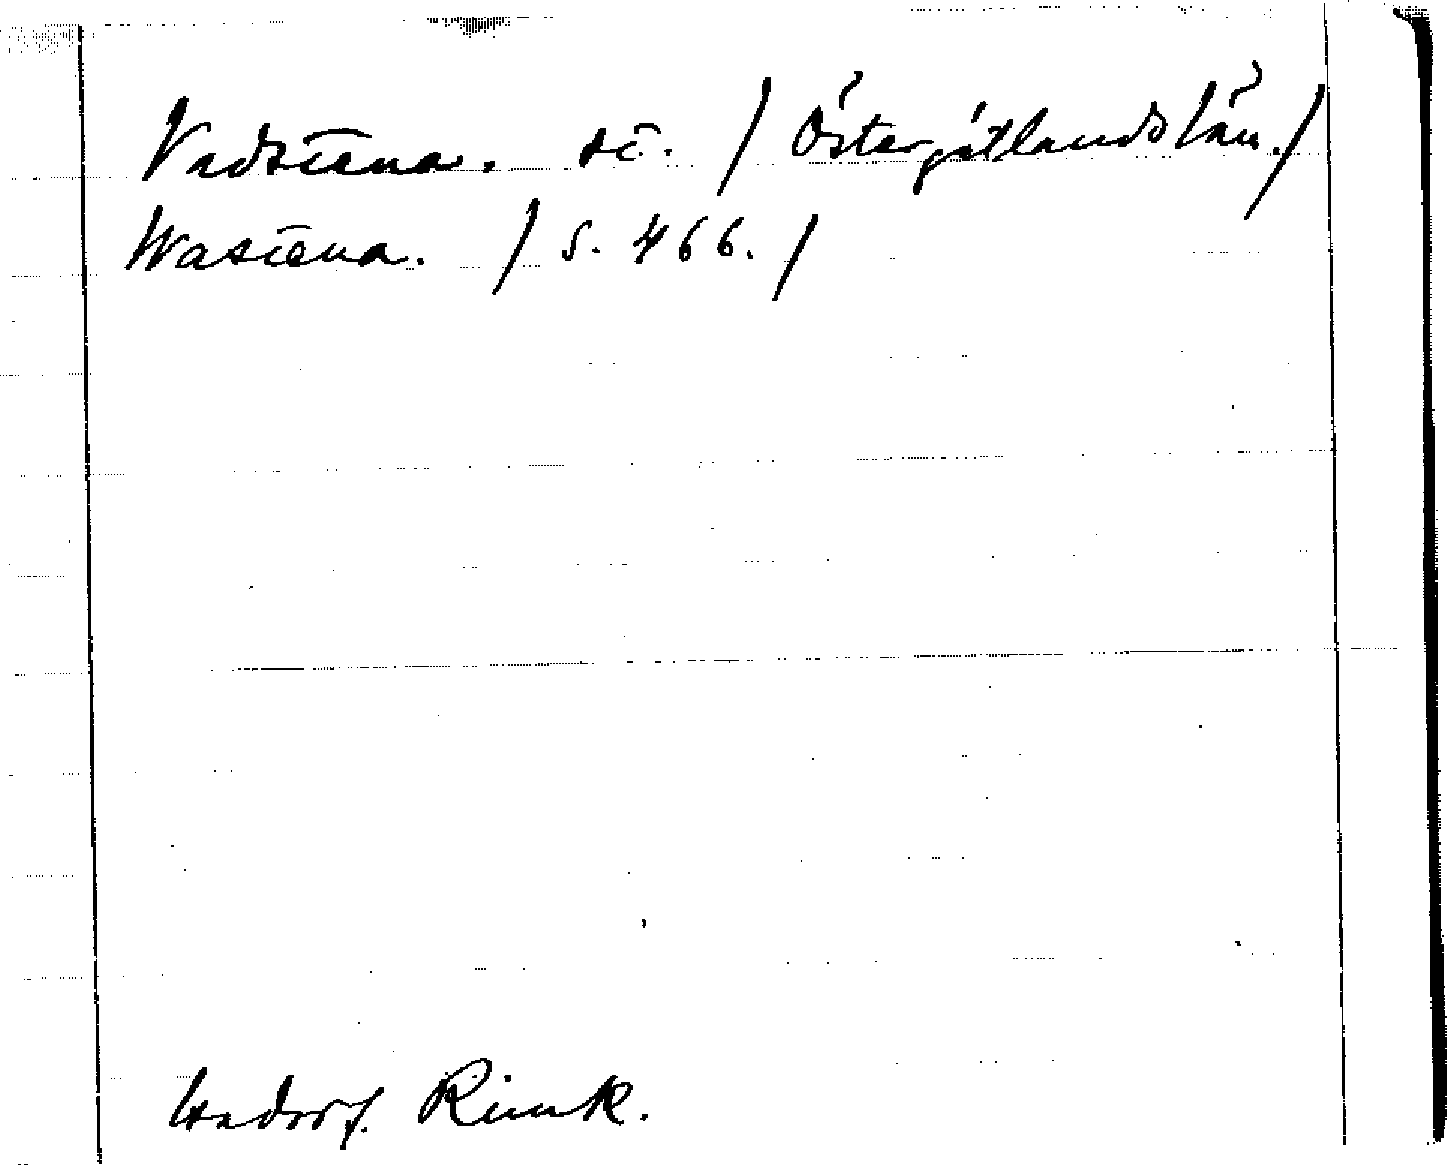 Vadstena. st. / Östergötlands län. /
Wastena. / S. 466. /
Hadorf. Rimk.